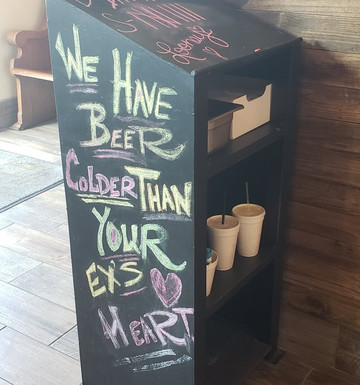 WE HAVE
BEER
COLDER THAN
YOUR
EXS
HEART